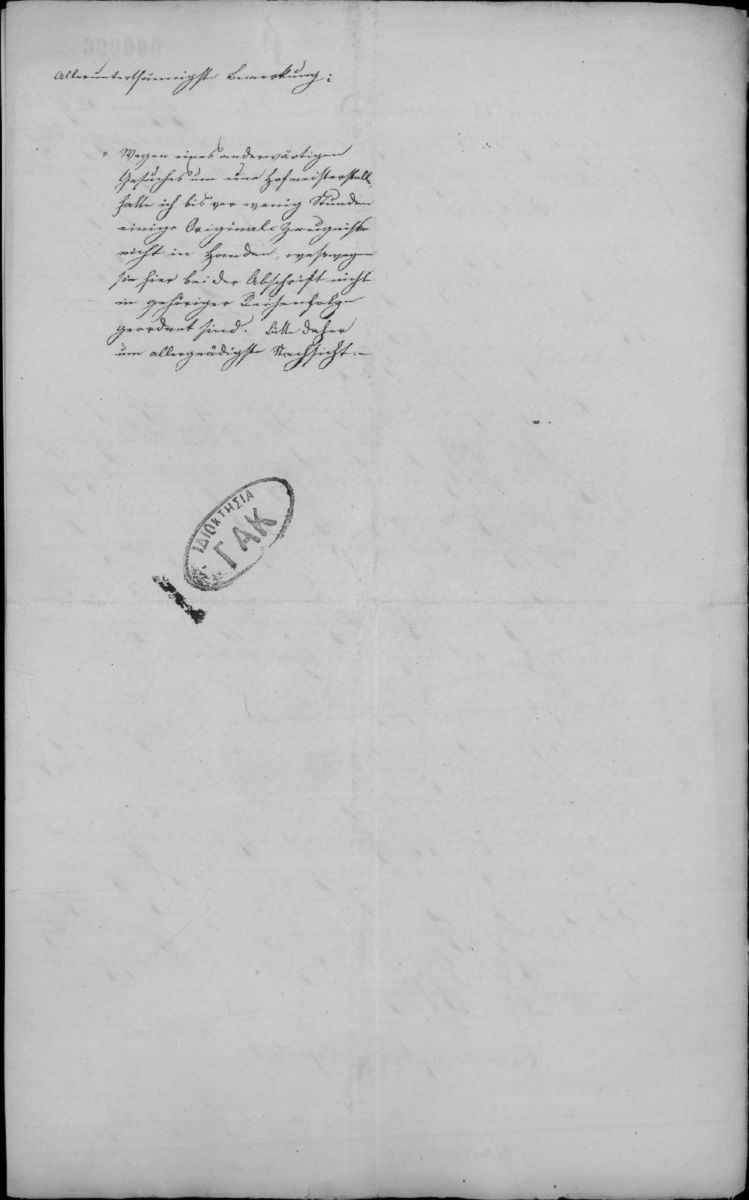 Allerunterthänigste Bemerkung:
" Wegen eines anderwärtigen
Gesuches um eine Hofmeisterstelle
hatte ich bis vor wenig Stunden
einige Original-Zeugnisse
nicht in Handen, weßwegen
sie hier bei der Abschrift nicht
in gehöriger Reihenfolge
geordnet sind. Bitte daher
um allergnädigste Nachsicht.–
ΙΔΙΟΚΤΗΣΙΑ
ΓΑΚ